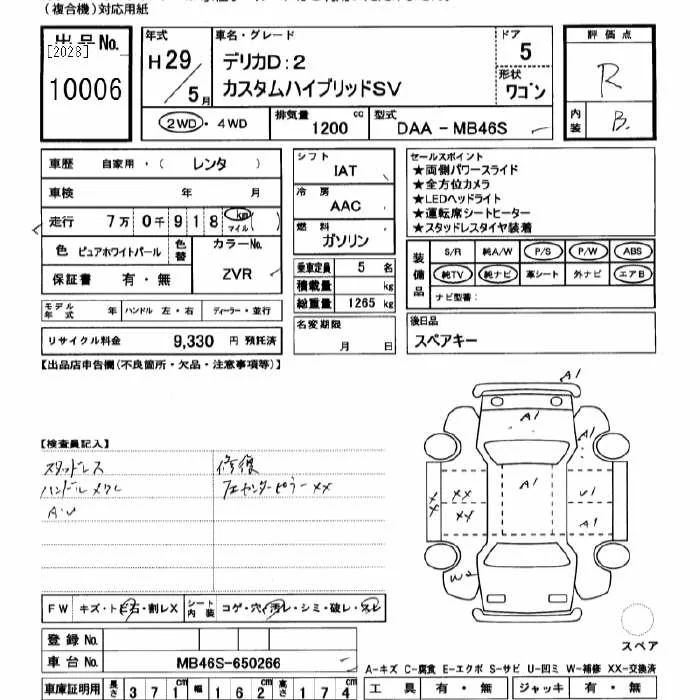 (複合機)対応用紙
出品No.
[2028]
10006
年式
H29/5月
車名・グレード
デリカD:2
カスタムハイブリッドSV
ドア
5
形状
ワゴン
評価点
R
内装
B
2WD・4WD
排気量 1200 cc
型式 DAA-MB46S
車歴 自家用・(レンタ)
車検 年 月
走行 7万0千918km マイル( )
色 ピュアホワイトパール
色替
カラーNo.
ZVR
保証書 有・無
モデル年式 年 ハンドル 左・右 ディーラー・並行
リサイクル料金 9,330 円 預託済
シフト
IAT
冷房
AAC
燃料
ガソリン
乗車定員 5 名
積載量 kg
総重量 1265 kg
名変期限
月 日
セールスポイント
★両側パワースライド
★全方位カメラ
★LEDヘッドライト
★運転席シートヒーター
★スタッドレスタイヤ装着
装備品
S/R 純A/W P/S P/W ABS
純TV 純ナビ 革シート 外ナビ エアB
ナビ型番:
後日品
スペアキー
【出品店申告欄(不良箇所・欠品・注意事項等)】
【検査員記入】
スタッドレス
ハンドルメクレ
A・U
修復
フロセンターピラーXX
A1
A1
A1
A1
U1
A1
XX
XX
XY
W2
スペア
FW キズ・トビ石・割レX
シート内装 コゲ・穴・汚レ・シミ・破レ・スレ
登録No.
車台No. MB46S-650266
車庫証明用 長さ 371cm 幅 162cm 高さ 174cm
A-キズ C-腐食 E-エクボ S-サビ U-凹ミ W-補修 XX-交換済
工具 有・無 ジャッキ 有・無